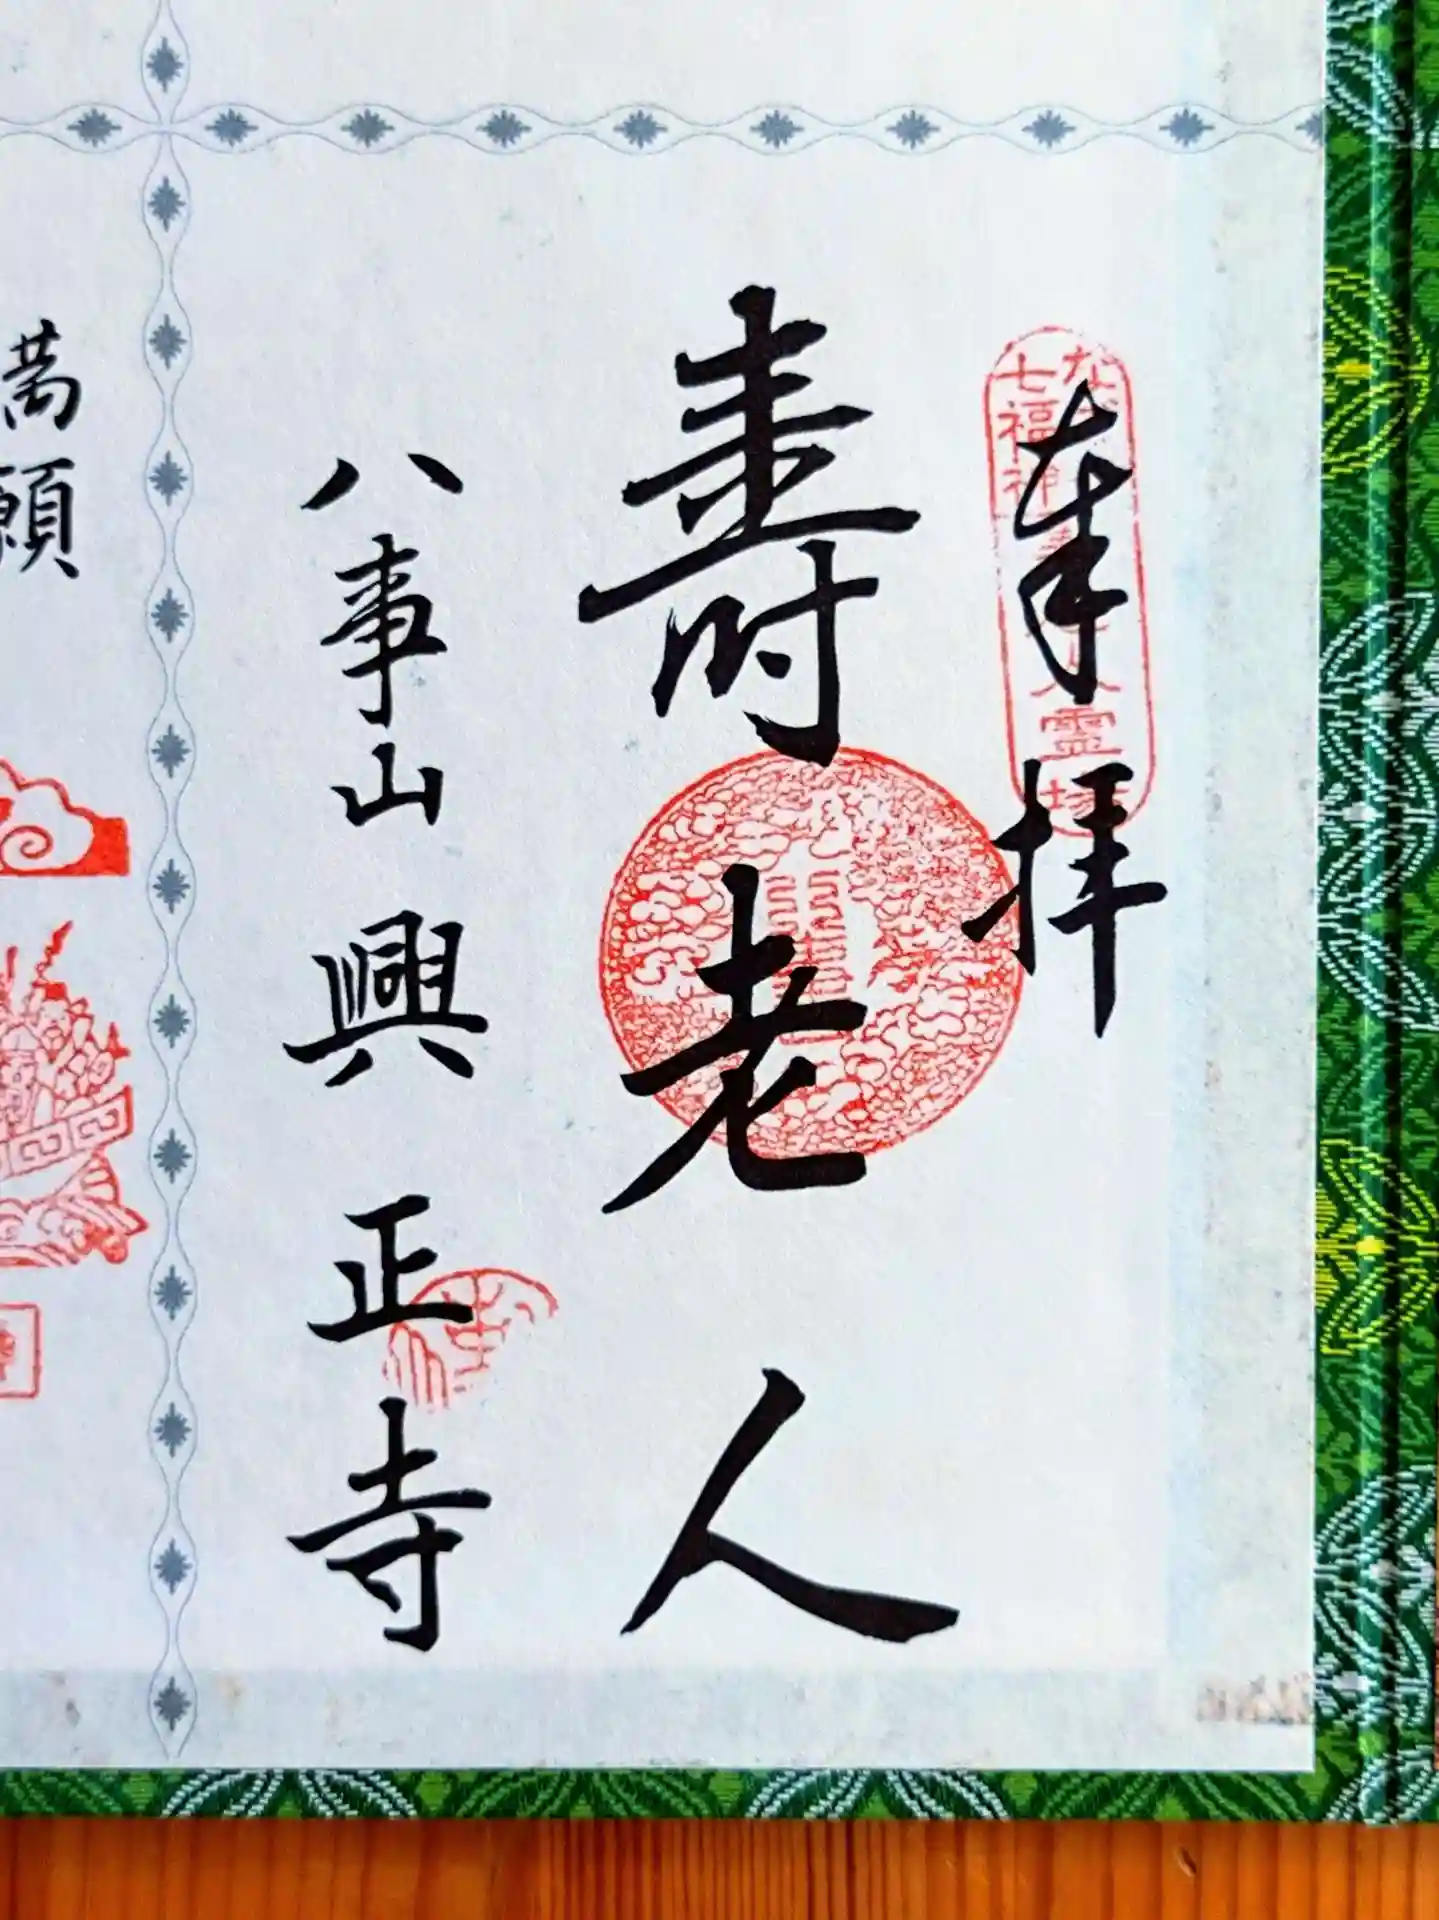 奉拝
七福神
霊場
壽老人
八事山 興正寺
萬願